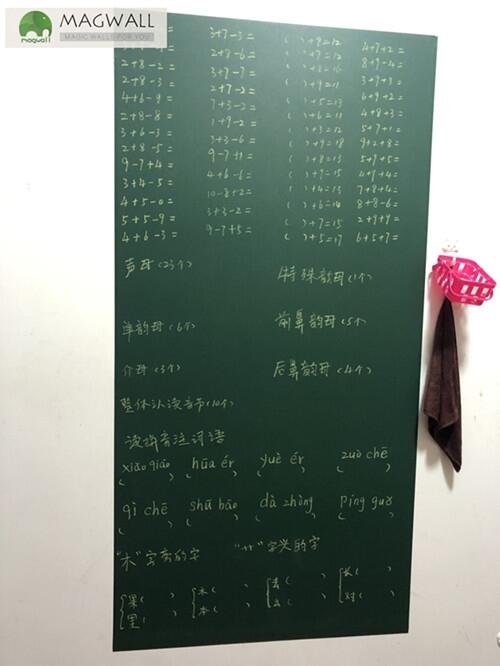 MAGWALL
magwall
MAGIC WALLS FOR YOU
2+8-2=
2+8-3=
4+6-9=
2+8-8=
3+6-3=
2+8-5=
9-7+4=
3+4-5=
4+5-0=
5+5-9=
4+6-3=
3+7-3=
2+8-6=
3+7-7=
2+7-2=
7+3-2=
1+9-2=
3+3-6=
9-7+1=
4+6-6=
10-8+2=
3+3-2=
9-7+5=
( )+9=12
( )+7=12
( )+8=16
( )+9=11
( )+5=13
( )+6=11
( )+3=12
( )+9=18
( )+8=13
( )+7=15
( )+4=13
( )+6=14
( )+7=15
( )+5=17
4+7+2=
8+9-4=
3+9+3=
6+9+2=
4+8+3=
5+7+1=
9+2+8=
5+7+5=
4+9+4=
7+8+4=
8+8-6=
2+9+9=
6+5+7=
声母(23个) 特殊韵母(1个)
单韵母(6个) 前鼻韵母(5个
介母(3个) 后鼻韵母(4个)
整体认读音节(10个)
读拼音注词语
xiǎo qiáo huā ér yuè ér zuò chē
( ) ( ) ( ) ( )
qì chē shū bāo dà zhòng píng guǒ
( ) ( ) ( ) ( )
"木"字旁的字 "艹"字头的字
果( ) 木( ) 去( ) 长( )
里( ) 本( ) 云( ) 对( )